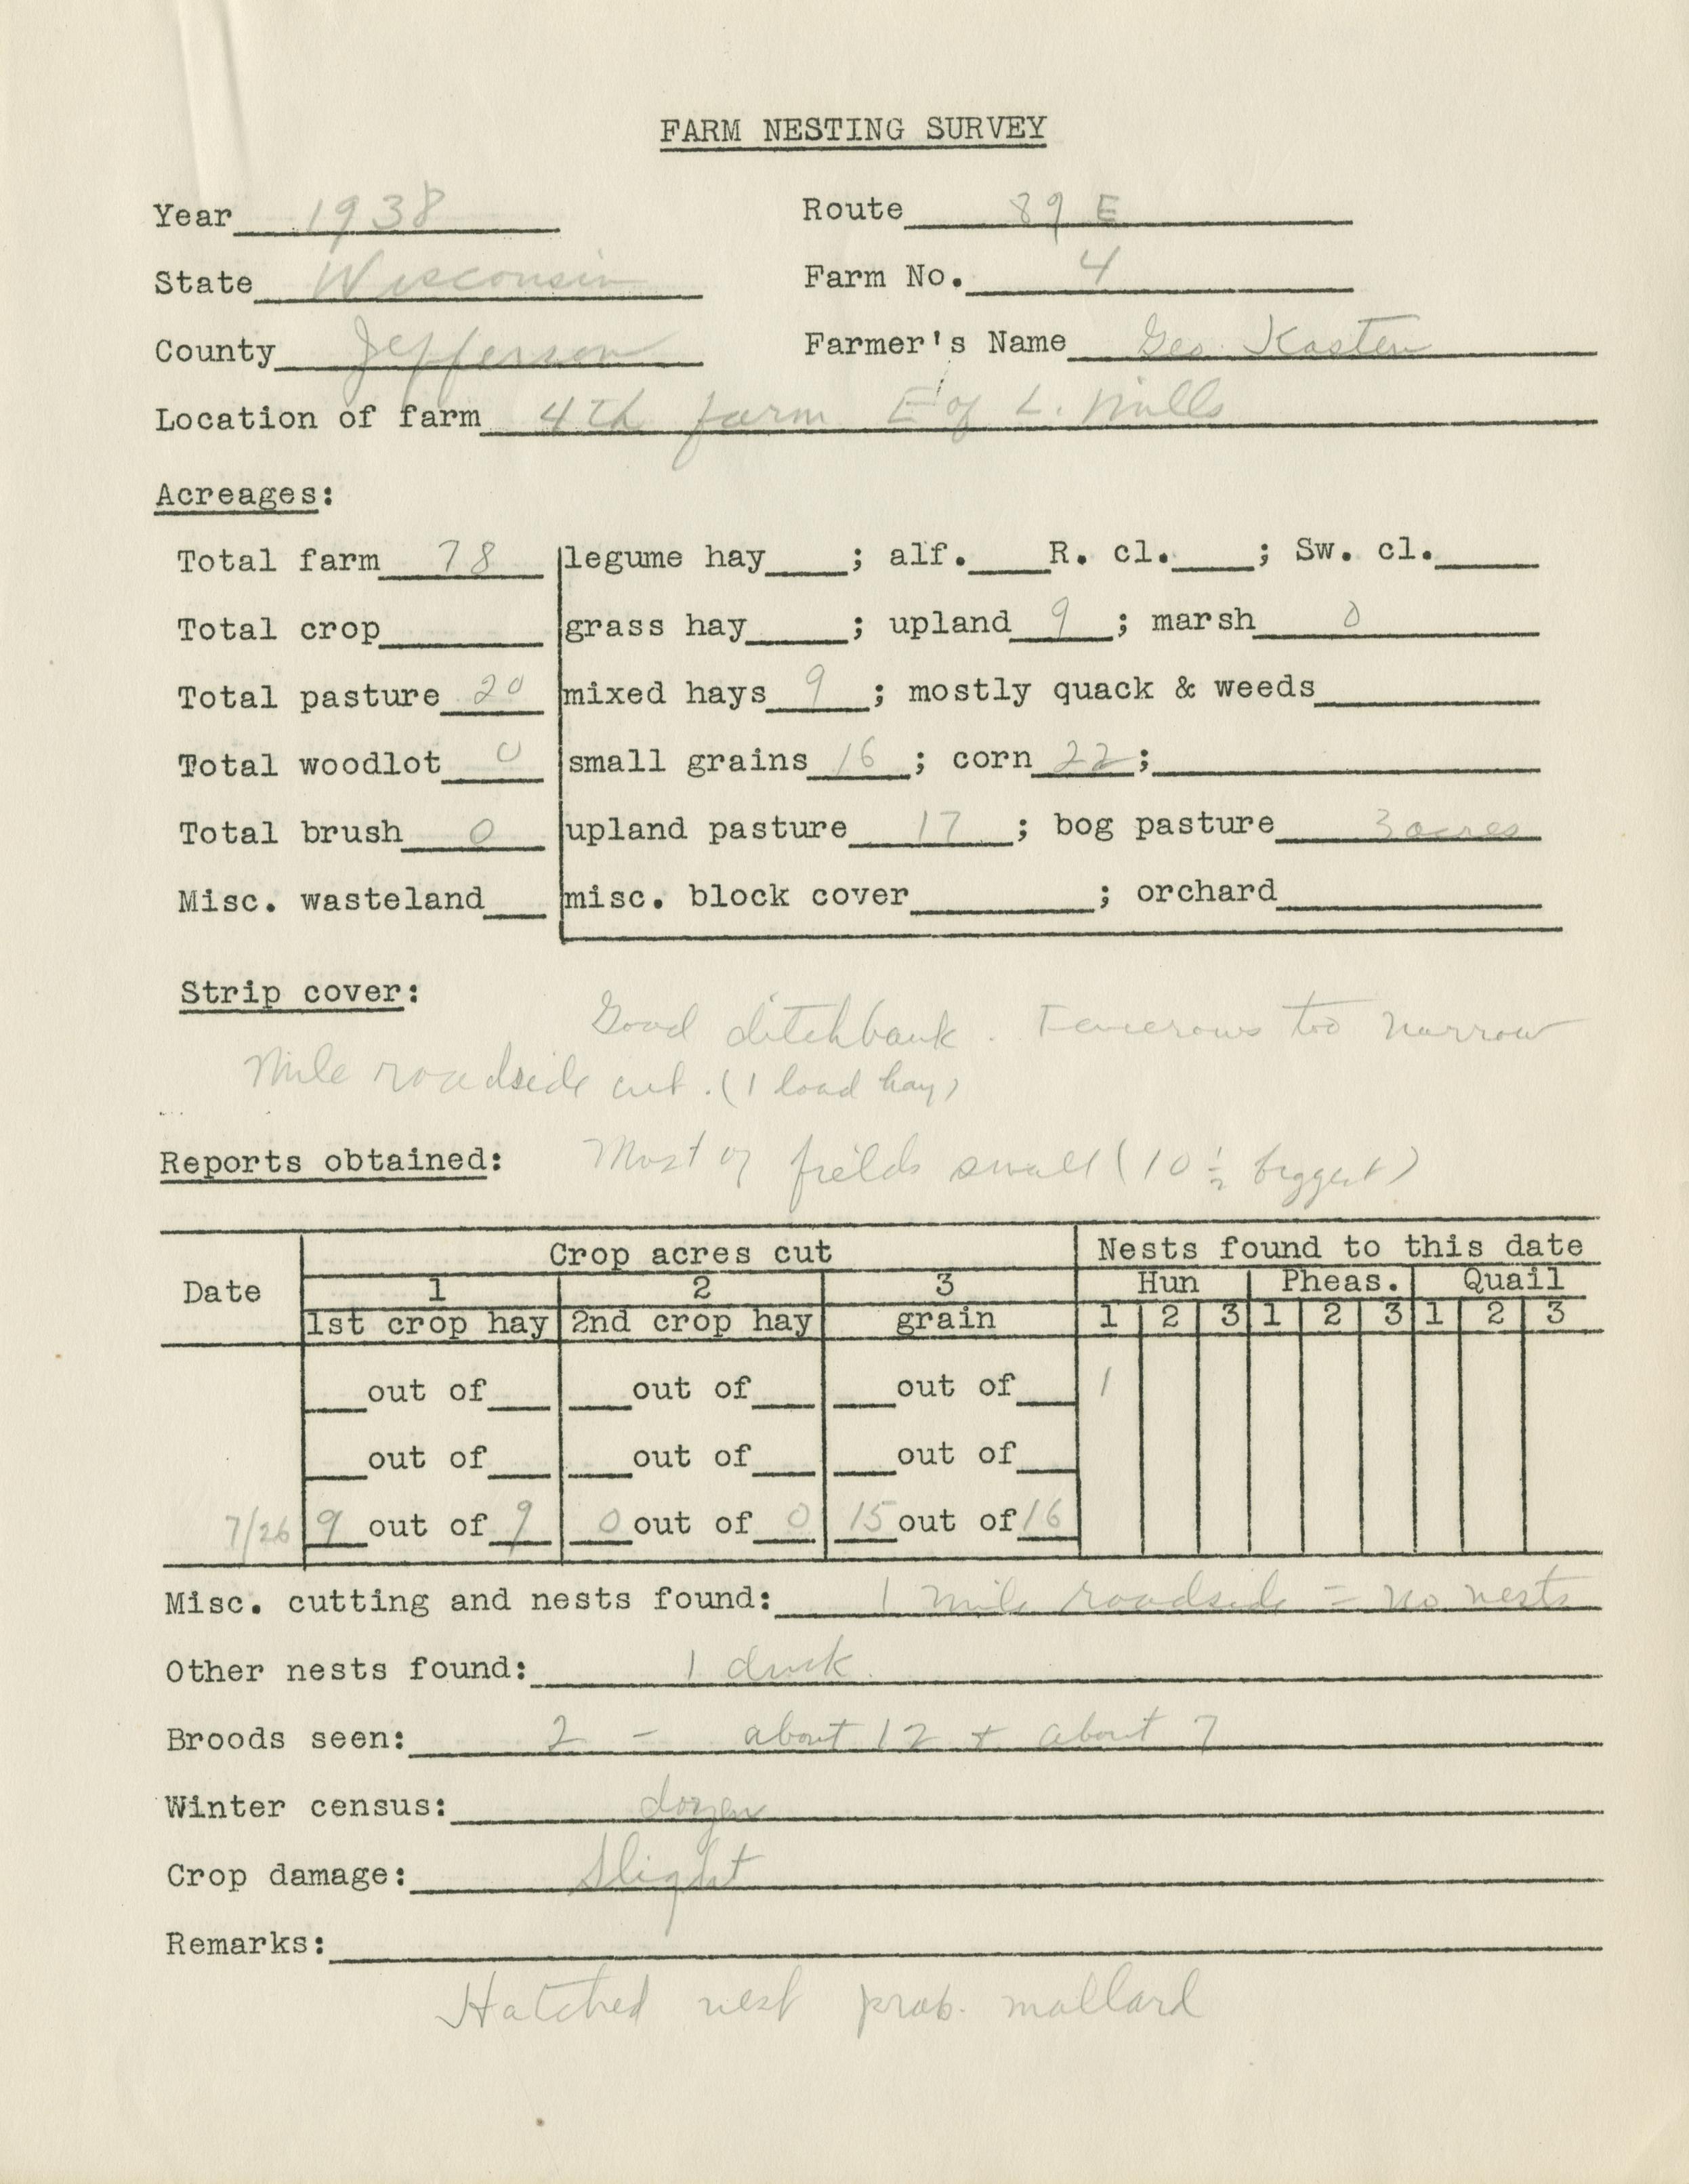 FARM NESTING SURVEY
Year 1938 Route 89 E
State Wisconsin Farm No. 4
County Jefferson Farmer's Name Geo. Kasten
Location of farm 4th farm E of L. Mills
Acreages:
Total farm 78 legume hay ; alf. R. cl. ; Sw. cl.
Total crop grass hay ; upland 9 ; marsh 0
Total pasture 20 mixed hays 9 ; mostly quack & weeds
Total woodlot 0 small grains 16 ; corn 22 ;
Total brush 0 upland pasture 17 ; bog pasture 3 acres
Misc. wasteland misc. block cover ; orchard
Strip cover: Good ditchbank. Fencerows too narrow
Mile roadside cut. (1 load hay)
Reports obtained: Most of fields small (10 1/2 biggest)
Crop acres cut Nests found to this date
Date 1 2 3 Hun Pheas. Quail
1st crop hay 2nd crop hay grain 1 2 3 1 2 3 1 2 3
out of out of out of 1
out of out of out of
7/26 9 out of 9 0 out of 0 15 out of 16
Misc. cutting and nests found: 1 mile roadside = no nests
Other nests found: 1 duck.
Broods seen: 2 - about 12 + about 7
Winter census: dozen
Crop damage: Slight
Remarks:
Hatched nest prob. mallard